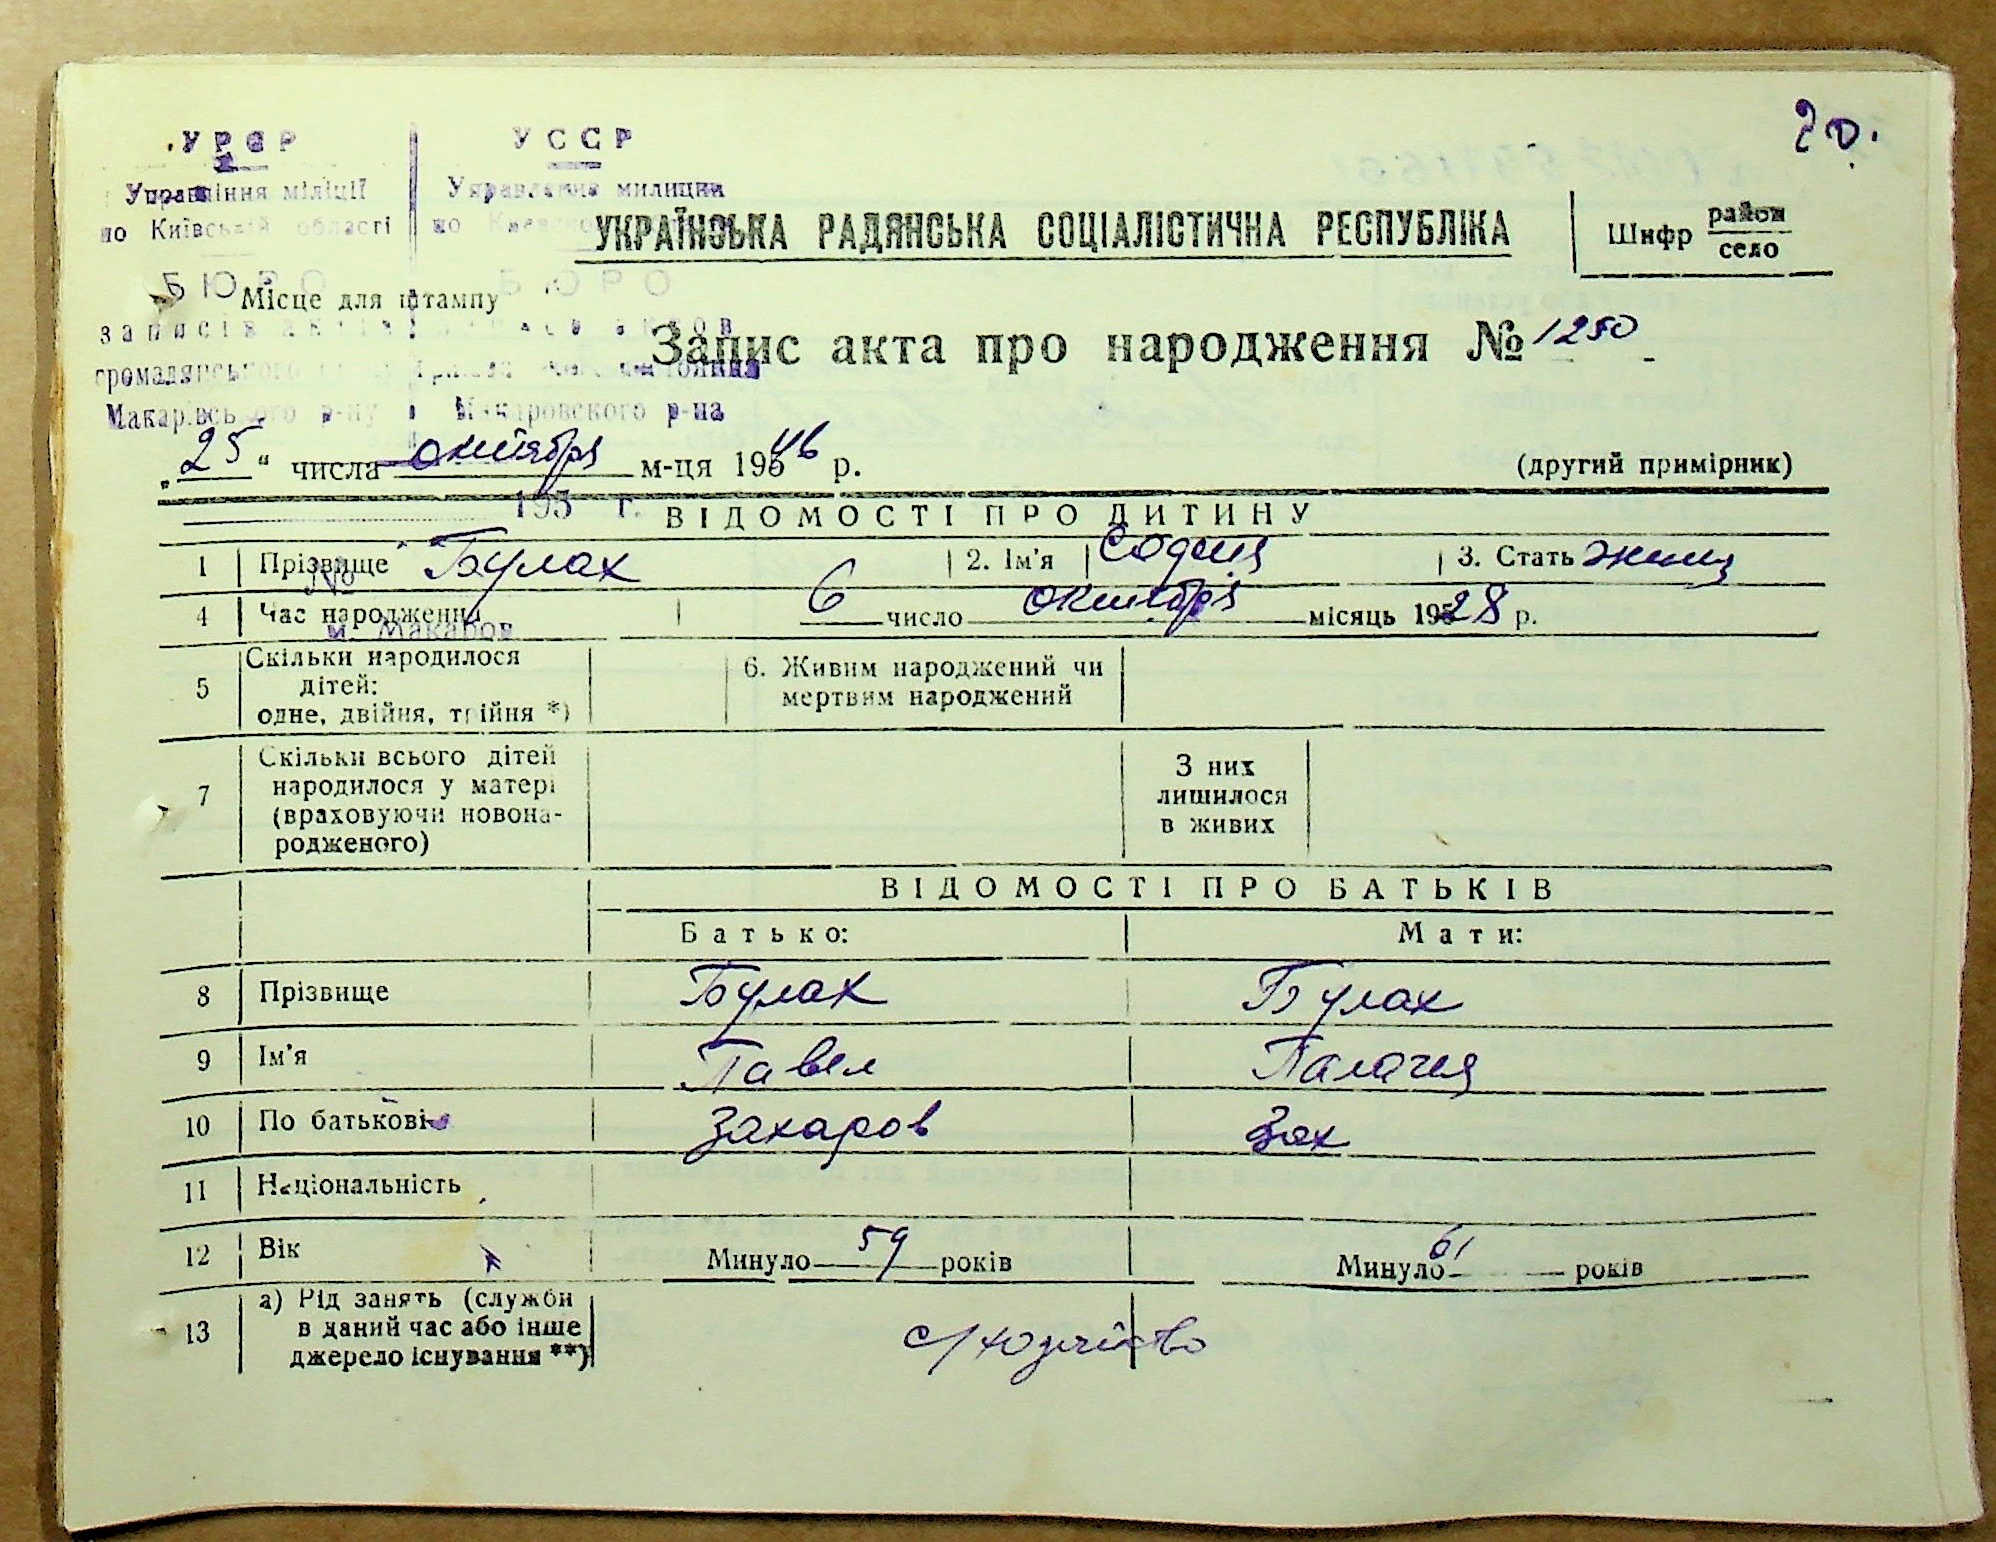 20.
УРСР УССР
Управління міліції Управление милиции
по Київській області по Киевской
УКРАЇНСЬКА РАДЯНСЬКА СОЦІАЛІСТИЧНА РЕСПУБЛІКА
Шифр район
село
БЮРО БЮРО
Місце для штампу
записів актів записей актов
Запис акта про народження № 1250
громадянського гражданского состояния
Макарівського р-ну Макаровского р-на
„25“ числа октября м-ця 1946 р.
(другий примірник)
195 г.
ВІДОМОСТІ ПРО ДИТИНУ
1 Прізвище Булах 2. Ім'я 3. Стать женщ
№
4 Час народження 6 число октября місяць 1928 р.
м. Макаров
5 Скільки народилося
дітей:
одне, двійня, трійня *)
6. Живим народжений чи
мертвим народжений
7 Скільки всього дітей
народилося у матері
(враховуючи новона-
родженого)
З них
лишилося
в живих
ВІДОМОСТІ ПРО БАТЬКІВ
Батько: Мати:
8 Прізвище Булах Булах
9 Ім'я Павел Палагея
10 По батькові Захаров Зах
11 Національність
12 Вік Минуло 59 років Минуло 61 років
13 а) Рід занять (служби
в даний час або інше
джерело існування **)